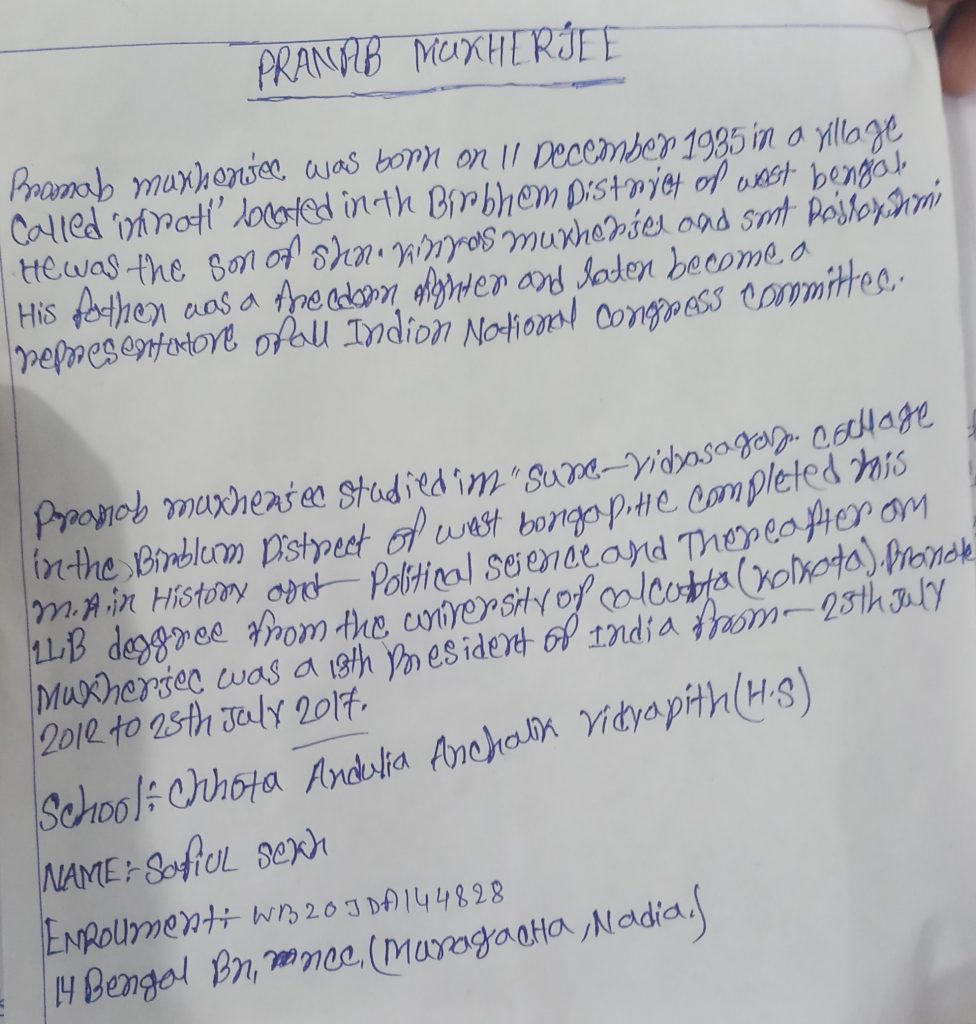 PRANAB MUKHERJEE
Pranab mukherjee was born on 11 December 1935 in a village
Called 'mirati' located in th Birbhem District of west bengal.
He was the son of shri. kinras mukherjee and smt Rajlokshmi
His father was a freedom fighter and later become a
representative of all Indion National Congress Committee.
Pranab mukherjee studied im "Sure-Vidyasagar collage
in the Birblum District of west bengap. He completed this
m.A in History and Political science and Thereafter am
LLB deggree from the university of calcutta (kolkota). Pranab
Mukherjee was a 13th President of India from - 25th July
2012 to 25th July 2017.
School:- Chhota Andulia Anchalik vidyapith (H.S)
NAME:- Safiul sekh
Enrollment:- WB20JDA144828
14 Bengal Bn, ncc, (Muragacha, Nadia.)